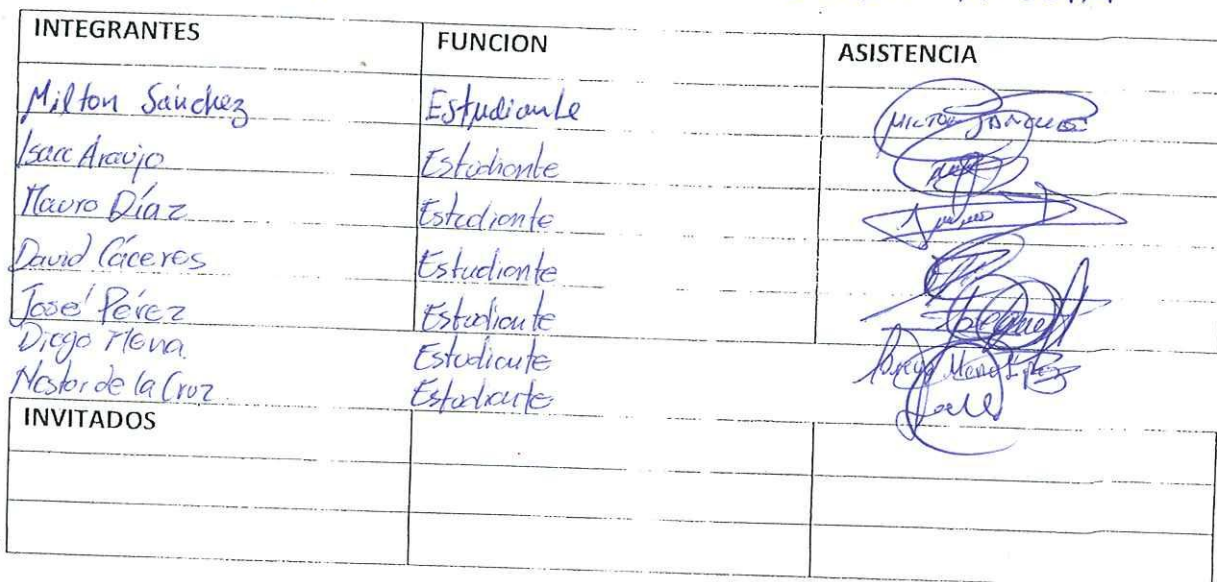 INTEGRANTES FUNCION ASISTENCIA
Milton Sánchez Estudiante MILTON SANCHEZ
Isacc Araujo Estudiante
Mauro Díaz Estudiante
David Cáceres Estudiante
José Pérez Estudiante
Diego Mena Estudiante Diego Mena
Nestor de la Cruz Estudiante
INVITADOS